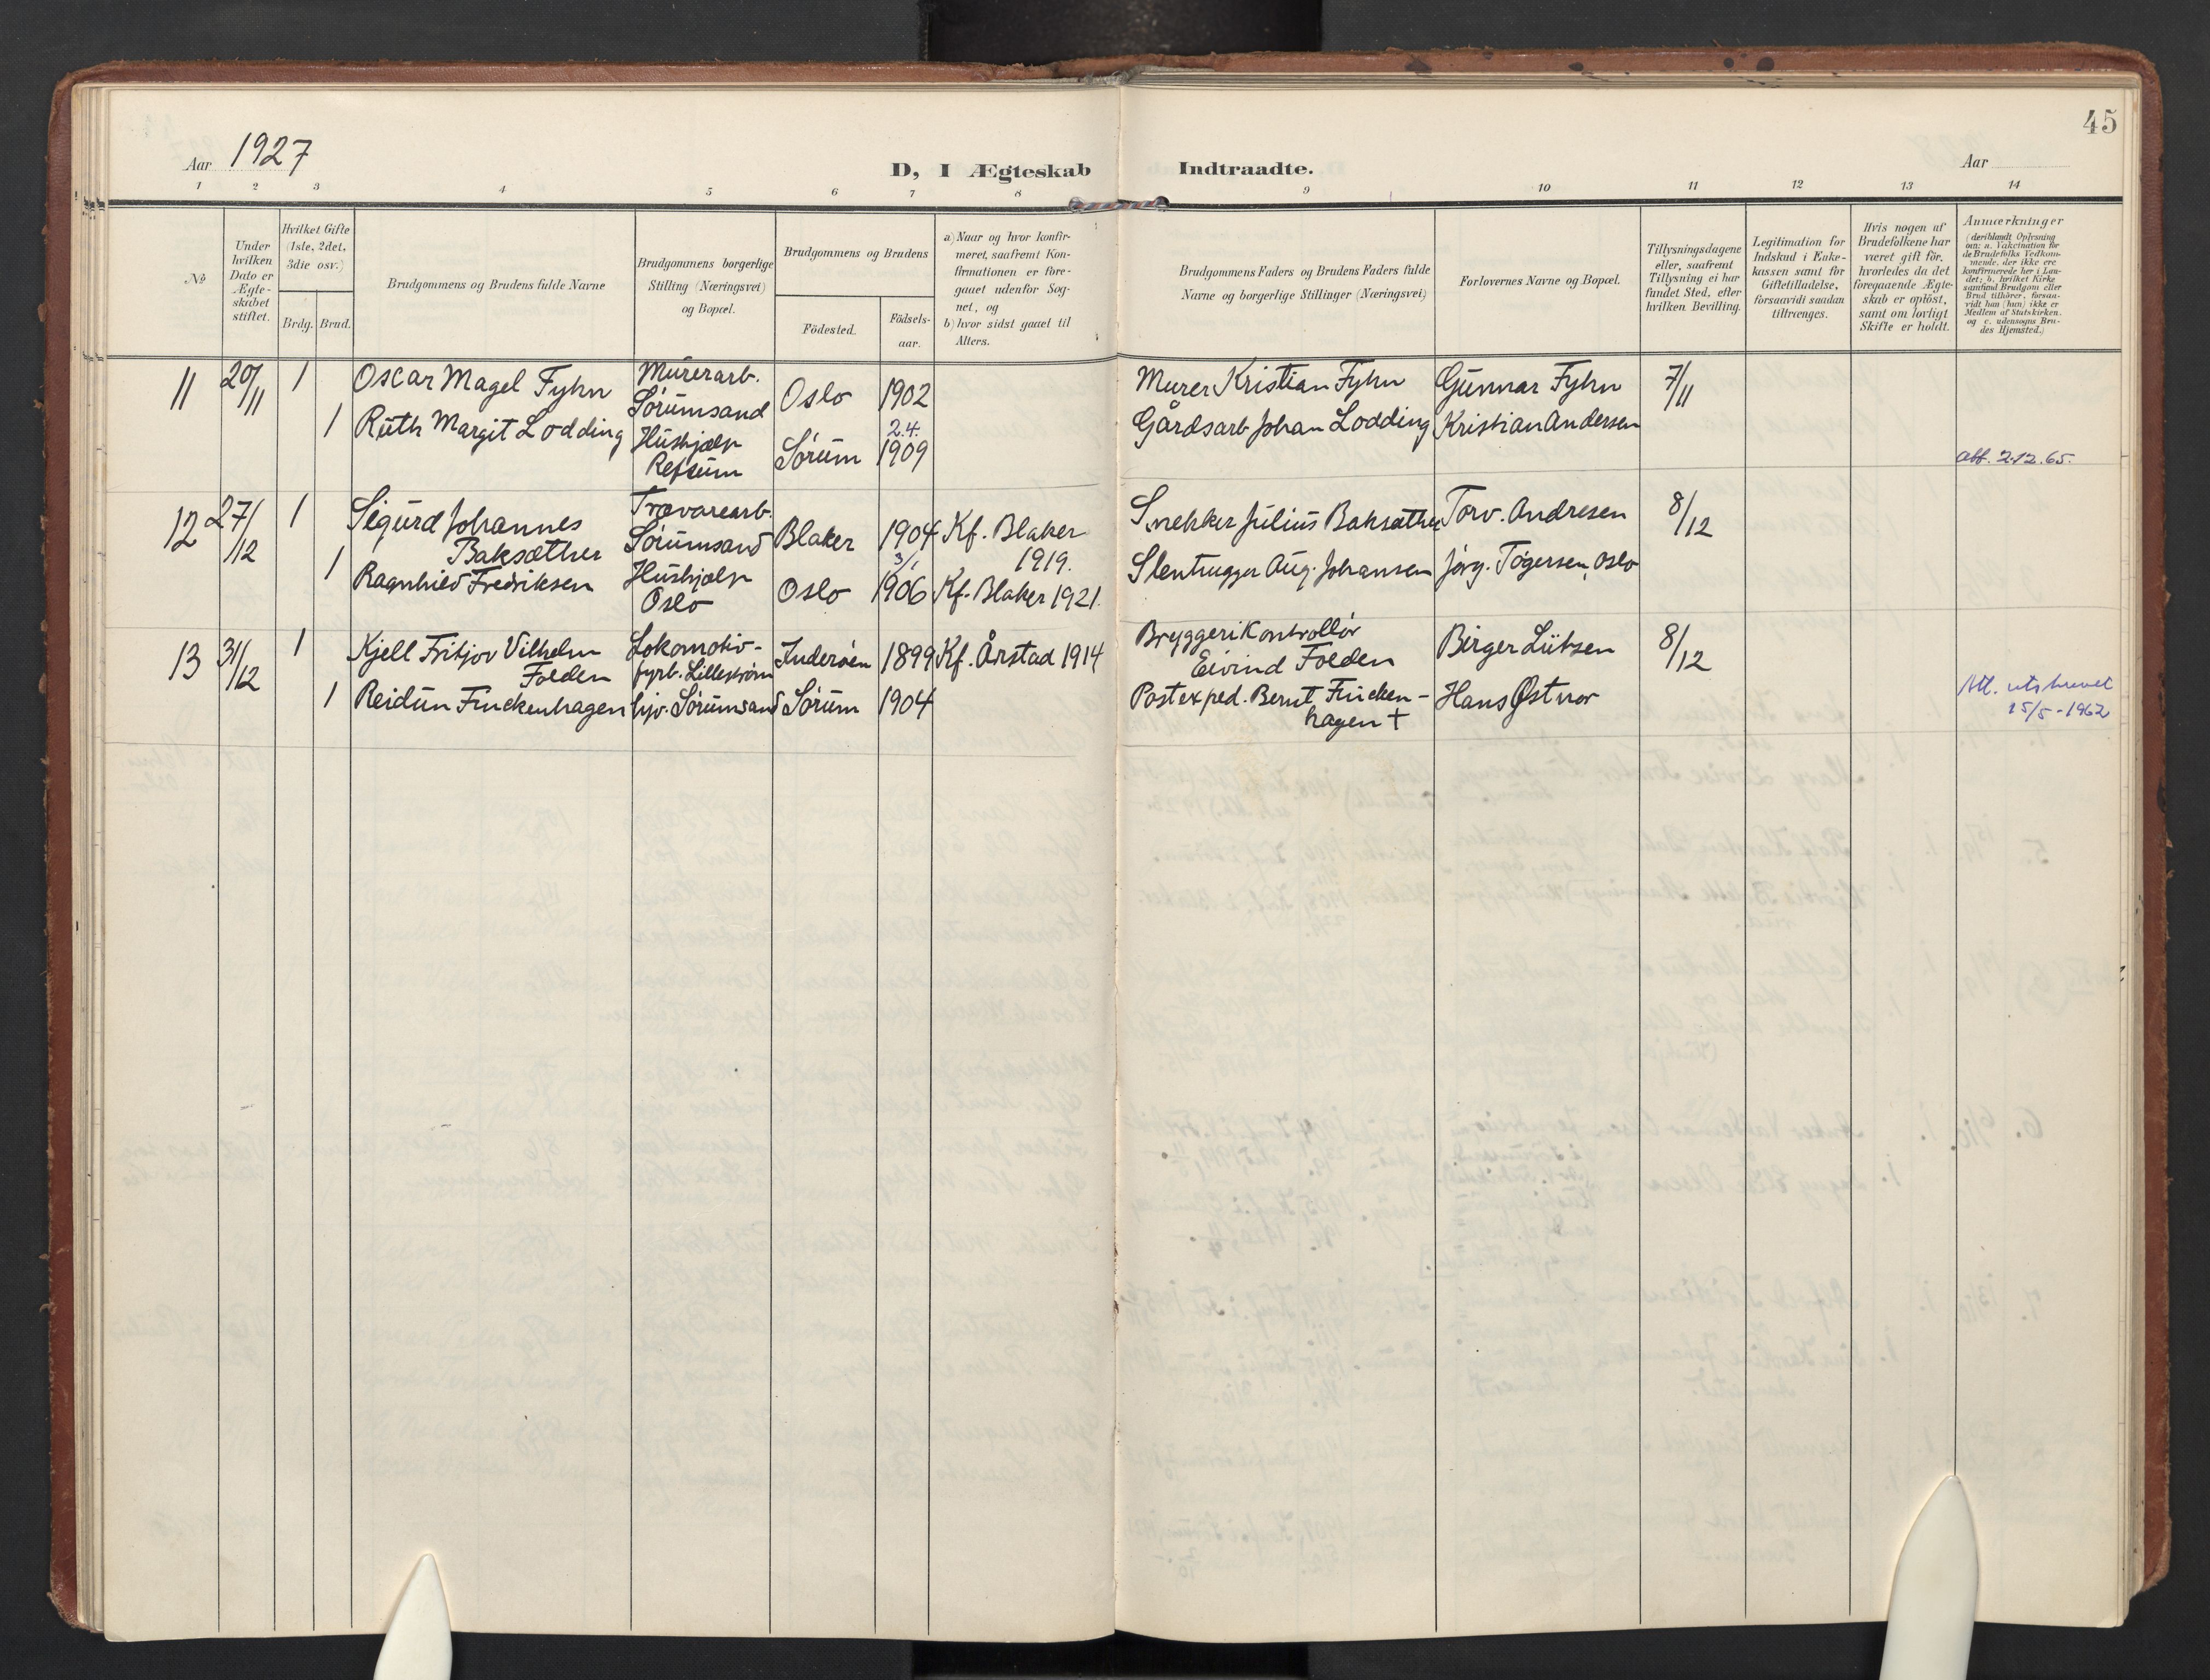 45
Aar 1927
D, I Ægteskab Indtraadte.
Aar
1 2 3 4 5 6 7 8 9 10 11 12 13 14
No
Under hvilken Dato er Ægte-skabet stiftet.
Hvilket Gifte (1ste, 2det, 3die osv.)
Brdg. Brud.
Brudgommens og Brudens fulde Navne
Brudgommens borgerlige Stilling (Næringsvei) og Bopæl.
Brudgommens og Brudens
Födested.
Födsels-aar.
a) Naar og hvor konfir-
meret, saafremt Kon-
firmationen er fore-
gaaet udenfor Sog-
net, og
b) hvor sidst gaaet til
Alters.
Brudgommens Faders og Brudens Faders fulde
Navne og borgerlige Stillinger (Næringsvei)
Forlovernes Navne og Bopæl.
Tillysningsdagene
eller, saafremt
Tillysning ei har
fundet Sted, efter
hvilken Bevilling.
Legitimation for
Indskud i Enke-
kassen samt for
Giftetilladelse,
forsaavidt saadan
tiltrænges.
Hvis nogen af
Brudefolkene har
været gift för,
hvorledes da det
foregaaende Ægte-
skab er oplöst,
samt om lovligt
Skifte er holdt.
Anmærkninger
(deriblandt Oplysning
om: a. Vakcination for
de Brudefolks Vedkom-
mende, der ikke ere
konfirmerede her i Lan-
det; b. hvilket Kirke-
samfund Brudgom eller
Brud tilhörer, forsaa-
vidt han (hun) ikke er
Medlem af Statskirken.
og c. udensogns Bru-
des Hjemsted.)
11 20/11 1 Oscar Magel Fyhn Murerarb. Sørumsand Oslo 1902 Murer Kristian Fyhn Gunnar Fyhn 7/11
1 Ruth Margit Lodding Hushjælp Refsum Sørum 2.4. 1909 Gårdsarb Johan Lodding Kristian Andersen
att. 2.12.65.
12 27/12 1 Sigurd Johannes Baksæther Trævarearb. Sørumsand Blaker 1904 Kf. Blaker 1919. Snekker Julius Baksæther Torv. Andresen 8/12
1 Ragnhild Fredriksen Hushjælp Oslo Oslo 3/1 1906 Kf. Blaker 1921. Stentrugger Aug. Johansen Jørg. Tøgersen, Oslo
13 31/12 1 Kjell Fritjov Vilhelm Folden Lokomotiv-fyrb. Lillestrøm Inderøen 1899 Kf. Årstad 1914 Bryggerikontrollør Eivind Folden Birger Lützen 8/12
1 Reidun Finckenhagen hjv. Sørumsand Sørum 1904 Postexped. Bernt Fincken-hagen + Hans Østnor
Att. utskrevet
15/5-1962